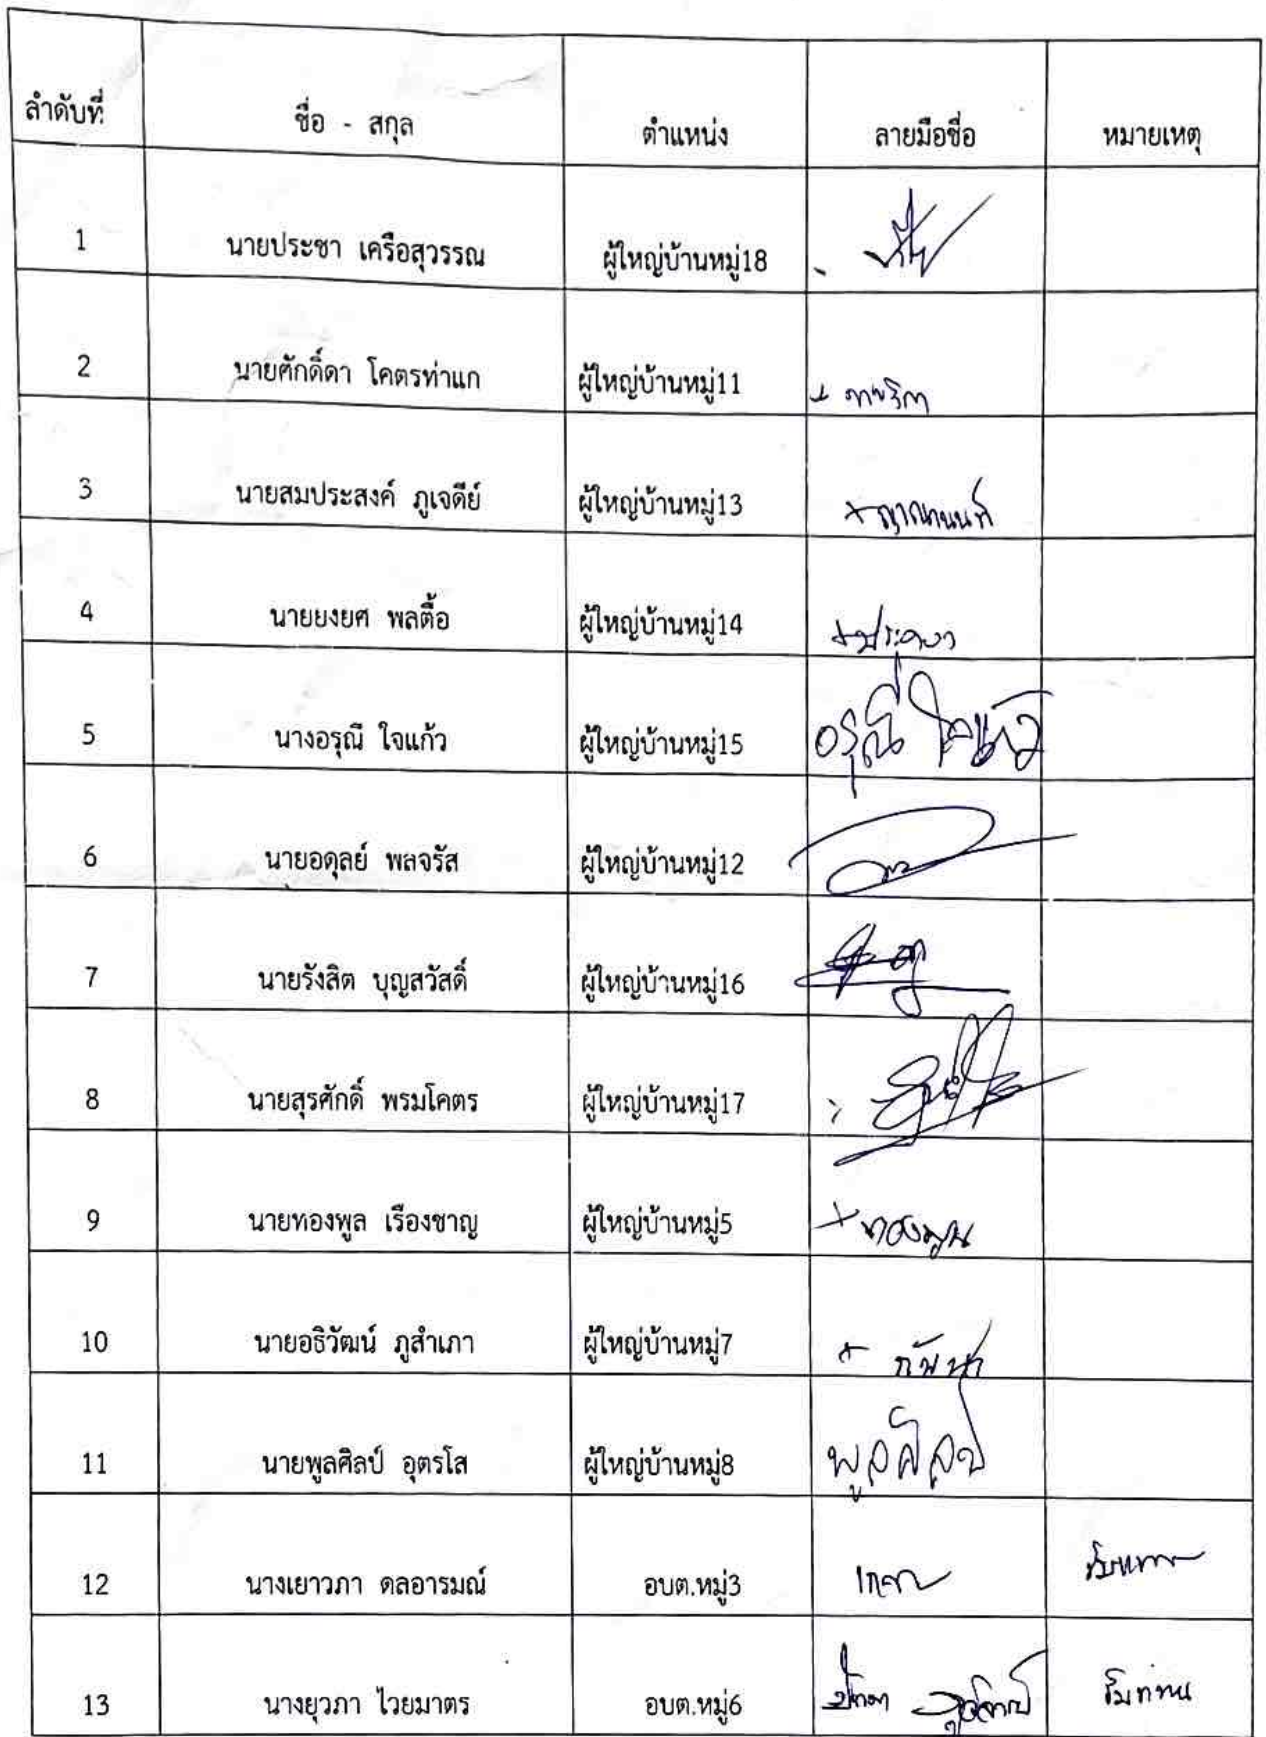 ลำดับที่ ชื่อ - สกุล ตำแหน่ง ลายมือชื่อ หมายเหตุ
1 นายประชา เครือสุวรรณ ผู้ใหญ่บ้านหมู่18
2 นายศักดิ์ดา โคตรท่าแก ผู้ใหญ่บ้านหมู่11
3 นายสมประสงค์ ภูเจดีย์ ผู้ใหญ่บ้านหมู่13
4 นายยงยศ พลตื้อ ผู้ใหญ่บ้านหมู่14
5 นางอรุณี ใจแก้ว ผู้ใหญ่บ้านหมู่15 อรุณี ใจแก้ว
6 นายอดุลย์ พลจรัส ผู้ใหญ่บ้านหมู่12
7 นายรังสิต บุญสวัสดิ์ ผู้ใหญ่บ้านหมู่16
8 นายสุรศักดิ์ พรมโคตร ผู้ใหญ่บ้านหมู่17
9 นายทองพูล เรืองชาญ ผู้ใหญ่บ้านหมู่5 ทองพูน
10 นายอธิวัฒน์ ภูสำเภา ผู้ใหญ่บ้านหมู่7
11 นายพูลศิลป์ อุตรโส ผู้ใหญ่บ้านหมู่8 พูลศิลป์
12 นางเยาวภา ดลอารมณ์ อบต.หมู่3
13 นางยุวภา ไวยมาตร อบต.หมู่6